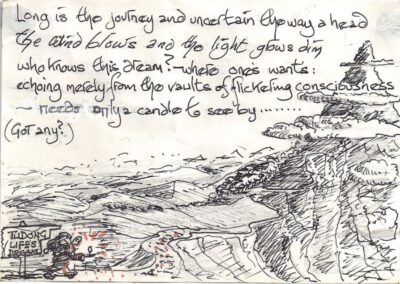 Long is the journey and uncertain the way a head
the wind blows and the light glows dim
who knows this dream? - where one's wants:
echoing merely from the vaults of flickering consciousness
- needs only a candle to see by.........
(Got any?)
TUDONG
LIFES